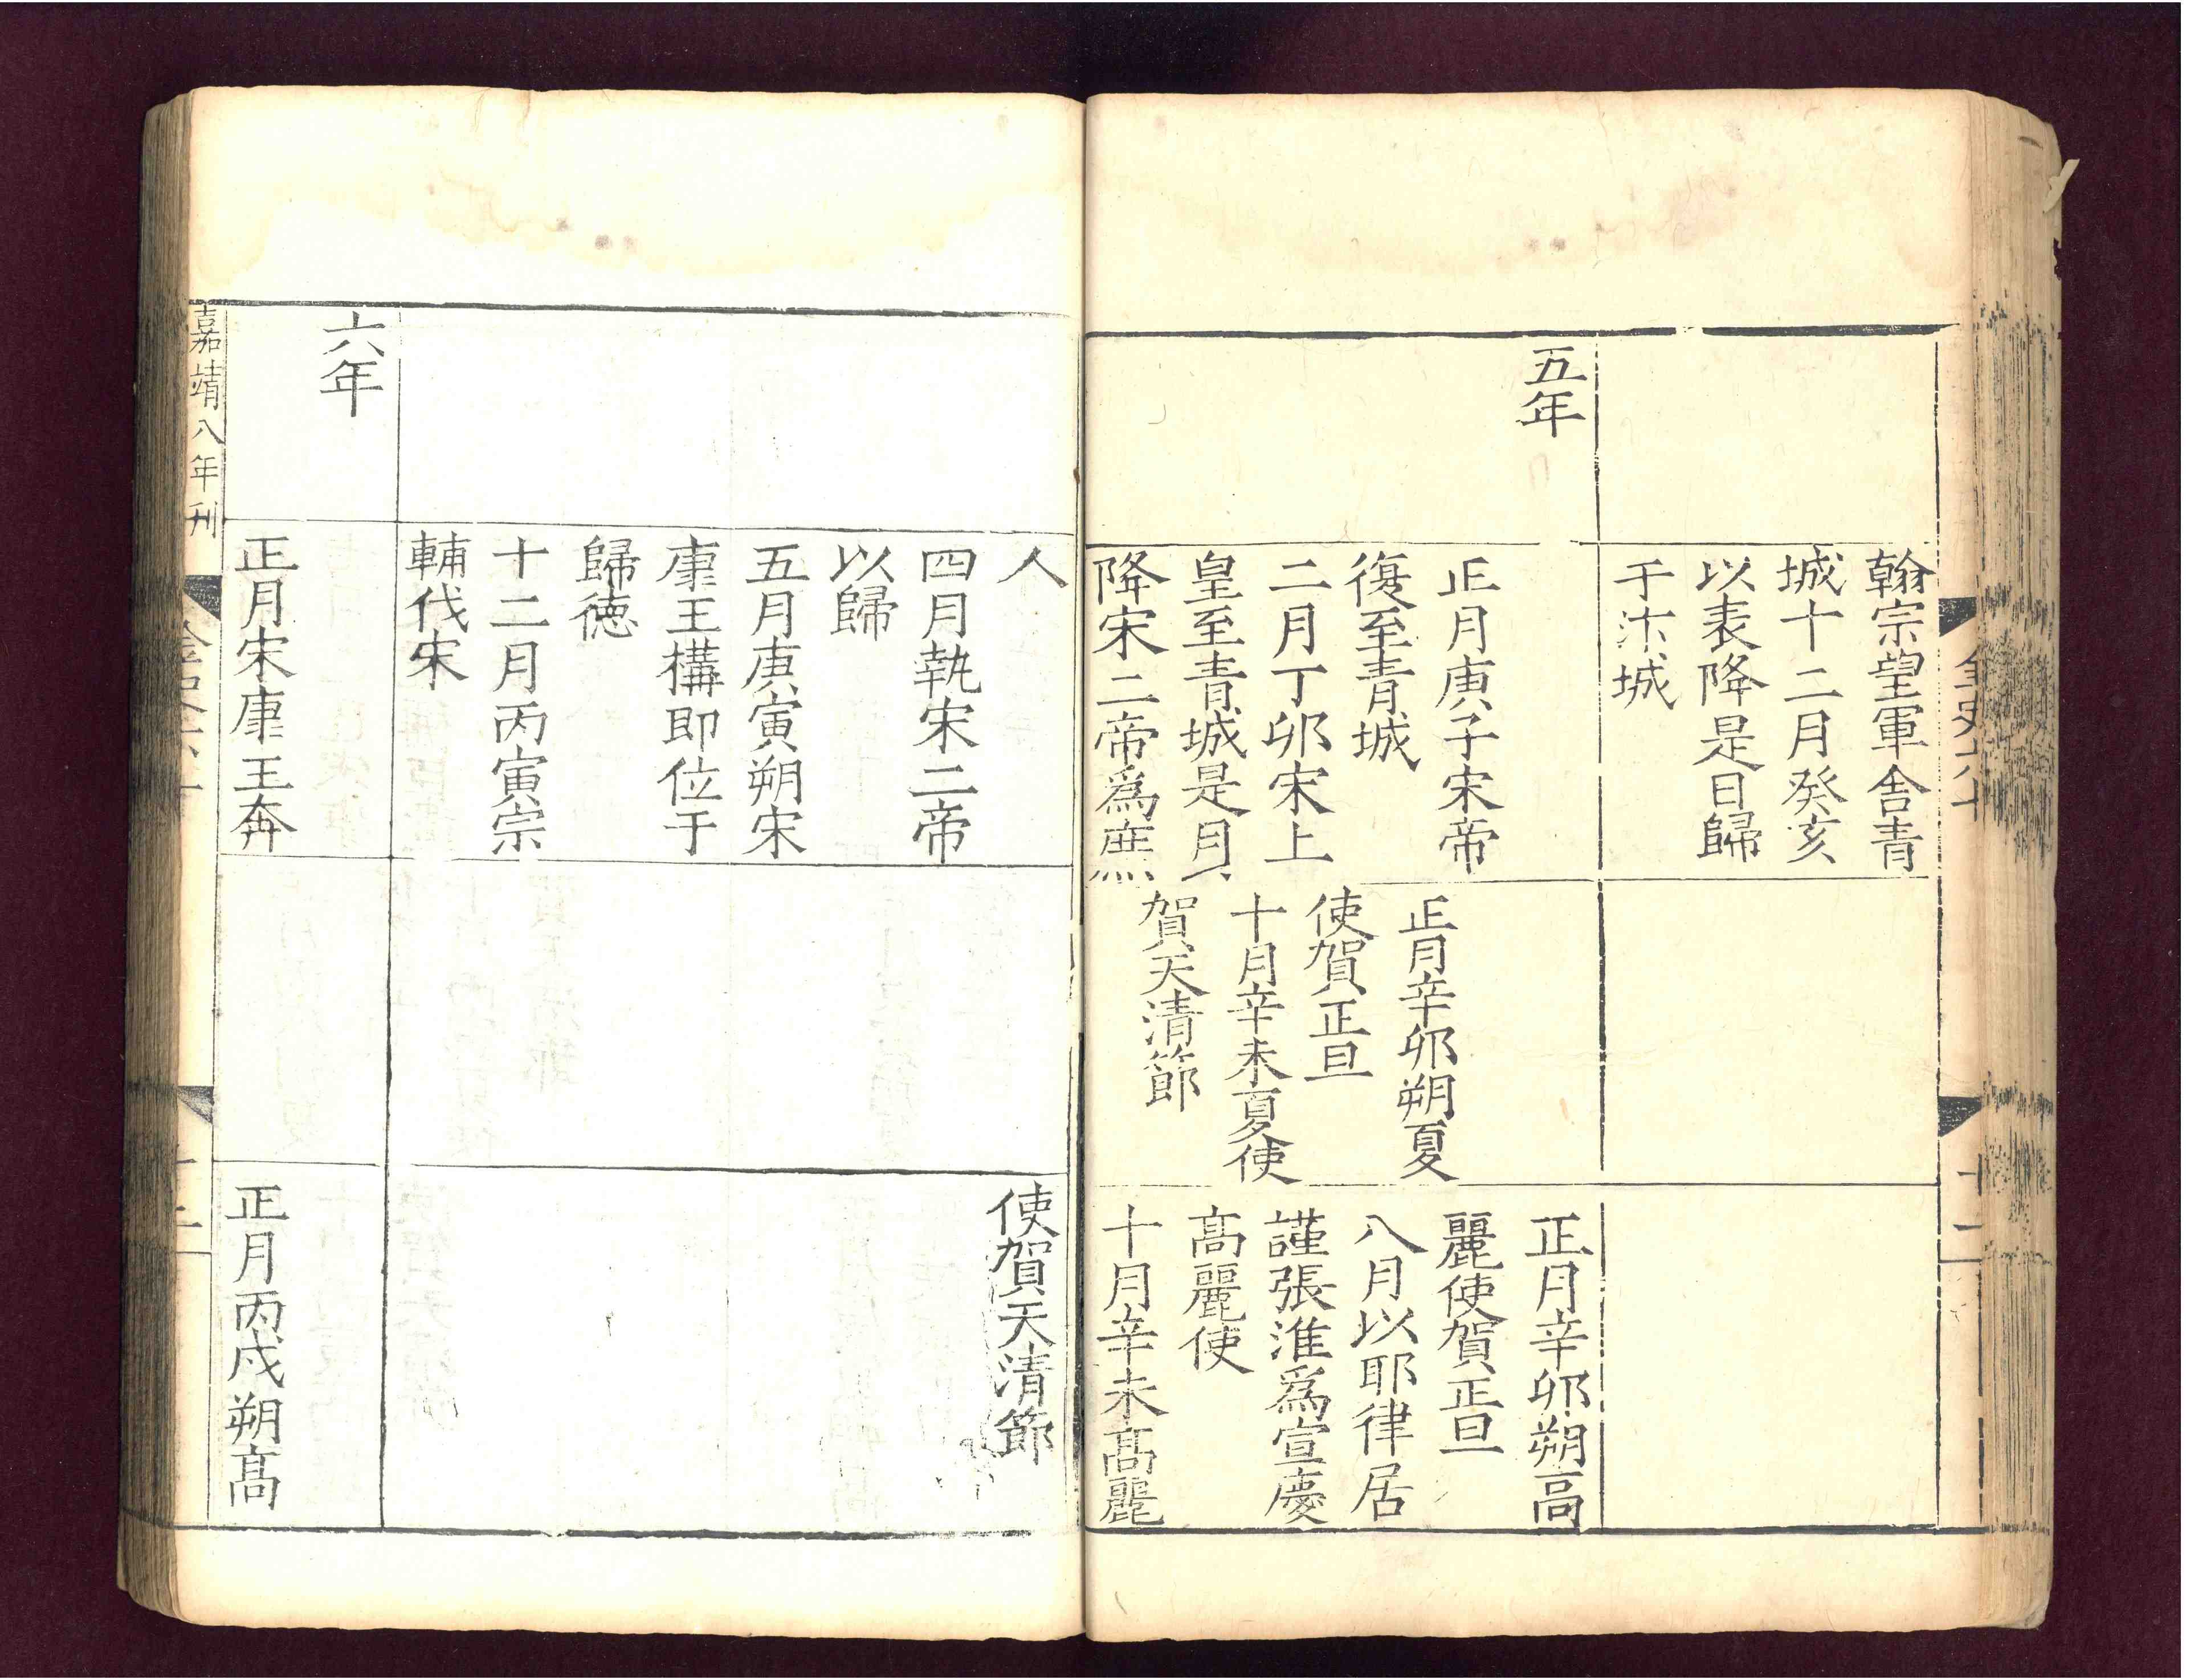 金史六十
十二
翰宗望軍舎青
城十二月癸亥
以表降是日歸
于汴城
五年
正月庚子宋帝
復至青城
二月丁卯宋上
皇至青城是月
降宋二帝爲庶
正月辛卯朔夏
使賀正旦
十月辛未夏使
賀天清節
正月辛卯朔高
麗使賀正旦
八月以耶律居
謹張淮爲宣慶
髙麗使
十月辛未髙麗
人
四月執宋二帝
以歸
五月庚寅朔宋
康王構即位于
歸徳
十二月丙寅宗
輔伐宋
使賀天清節
六年
正月宋康王奔
正月丙戌朔髙
嘉靖八年刊